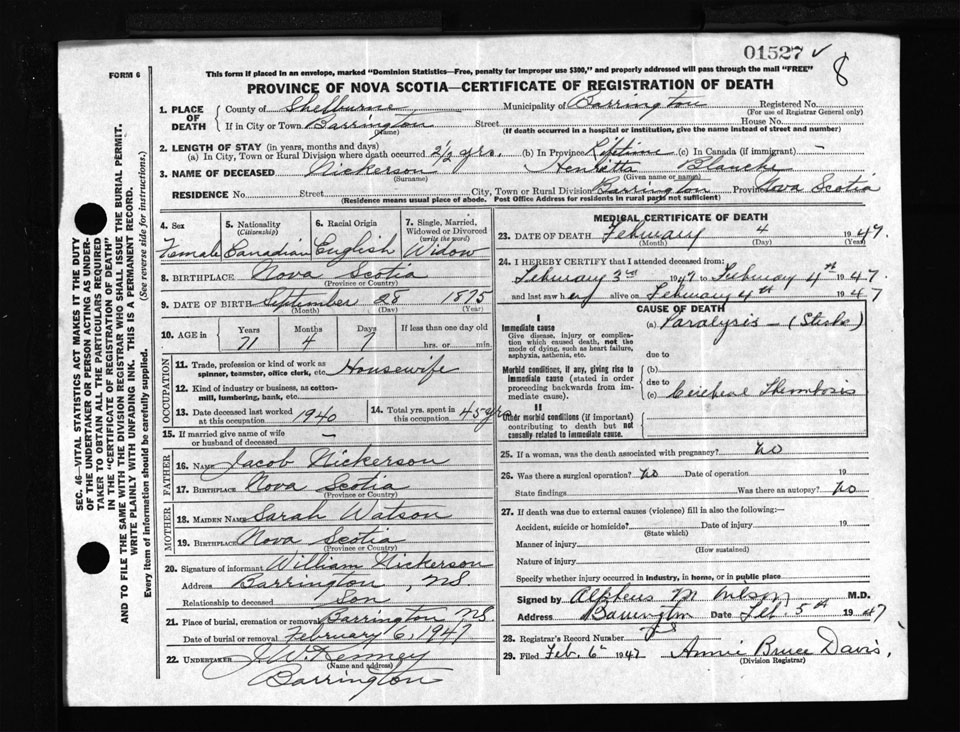 01527 ✓
8
FORM 6
This form if placed in an envelope, marked "Dominion Statistics—Free, penalty for improper use $300," and properly addressed will pass through the mail "FREE"
PROVINCE OF NOVA SCOTIA—CERTIFICATE OF REGISTRATION OF DEATH
SEC. 46—VITAL STATISTICS ACT MAKES IT THE DUTY
OF THE UNDERTAKER OR PERSON ACTING AS UNDER-
TAKER TO OBTAIN ALL THE PARTICULARS REQUIRED
IN THE "CERTIFICATE OF REGISTRATION OF DEATH"
AND TO FILE THE SAME WITH THE DIVISION REGISTRAR WHO SHALL ISSUE THE BURIAL PERMIT.
WRITE PLAINLY WITH UNFADING INK. THIS IS A PERMANENT RECORD.
Every item of information should be carefully supplied. (See reverse side for instructions.)
1. PLACE OF DEATH
County of Shelburne Municipality of Barrington Registered No.
(For use of Registrar General only)
If in City or Town Barrington Street House No.
(Name) (If death occurred in a hospital or institution, give the name instead of street and number)
2. LENGTH OF STAY (in years, months and days)
(a) In City, Town or Rural Division where death occurred 2½ yrs. (b) In Province Lifetime (c) In Canada (if immigrant) —
3. NAME OF DECEASED Nickerson Henrietta Blanche
(Surname) (Given name or names)
RESIDENCE No. Street City, Town or Rural Division Barrington Province Nova Scotia
(Residence means usual place of abode. Post Office Address for residents in rural parts not sufficient)
4. Sex 5. Nationality (Citizenship) 6. Racial Origin 7. Single, Married, Widowed or Divorced (write the word)
Female Canadian English Widow
8. BIRTHPLACE Nova Scotia
(Province or Country)
9. DATE OF BIRTH September 28 1875
(Month) (Day) (Year)
10. AGE in Years Months Days If less than one day old
71 4 7 hrs. or min.
OCCUPATION
11. Trade, profession or kind of work as spinner, teamster, office clerk, etc. Housewife
12. Kind of industry or business, as cotton-mill, lumbering, bank, etc.
13. Date deceased last worked at this occupation 1940 14. Total yrs. spent in this occupation 45 yrs
15. If married give name of wife or husband of deceased —
FATHER
16. NAME Jacob Nickerson
17. BIRTHPLACE Nova Scotia
(Province or Country)
MOTHER
18. MAIDEN NAME Sarah Watson
19. BIRTHPLACE Nova Scotia
(Province or Country)
20. Signature of informant William Nickerson
Address Barrington, NS
Relationship to deceased Son
21. Place of burial, cremation or removal Barrington N.S.
Date of burial or removal February 6, 1947
22. UNDERTAKER J. W. Kenney
(Name and address)
Barrington
MEDICAL CERTIFICATE OF DEATH
23. DATE OF DEATH February 4 1947.
(Month) (Day) (Year)
24. I HEREBY CERTIFY that I attended deceased from:
February 3rd 1947 to February 4th 1947.
and last saw her alive on February 4th 1947
CAUSE OF DEATH
I
Immediate cause (a) Paralysis —
Give disease, injury or complication which caused death, not the mode of dying, such as heart failure, asphyxia, asthenia, etc.
due to
Morbid conditions, if any, giving rise to immediate cause (stated in order proceeding backwards from immediate cause).
(b)
due to
(c) Cerebral Thrombosis
II
Other morbid conditions (if important) contributing to death but not causally related to immediate cause.
25. If a woman, was the death associated with pregnancy? no
26. Was there a surgical operation? no Date of operation 19
State findings Was there an autopsy? no
27. If death was due to external causes (violence) fill in also the following:—
Accident, suicide or homicide? Date of injury 19
(State which)
Manner of injury
(How sustained)
Nature of injury
Specify whether injury occurred in industry, in home, or in public place
Signed by Alpheus M. Wilson M.D.
Address Barrington Date Feb. 5th 1947
28. Registrar's Record Number
29. Filed Feb. 6th 1947 Annie Bruce Davis,
(Division Registrar)